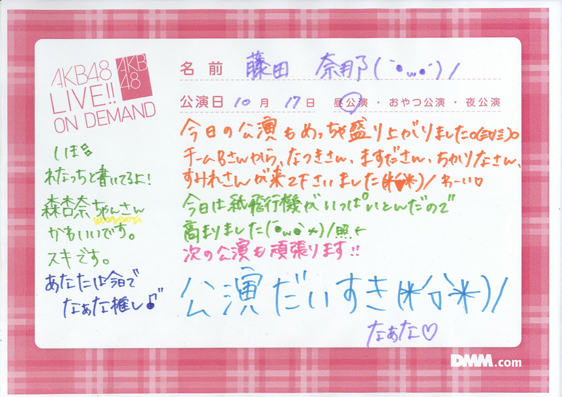 AKB48
LIVE!!
ON DEMAND
AKB
48
名前 藤田 奈那(｀●ω●´)/
公演日 10月 17日 ・ 昼公演 ・ おやつ公演 ・ 夜公演
今日の公演もめっちゃ盛り上がりました
チームBさんから、なつきさん、ますださん、ちかりなさん、
すみれさんが来て下さいました(*'∨'*)/わーい♡
今日は紙飛行機がいっぱいとんだので
高まりました(´●ω●`*)/照←
次の公演も頑張ります!!
公演だいすき(*'∨'*)/
なぁな♡
しほ
わたっちと書いてるよ!
森杏奈ちゃんさん
かわいいです。
スキです。
あなたは今日で
なぁな推し♪
DMM.com